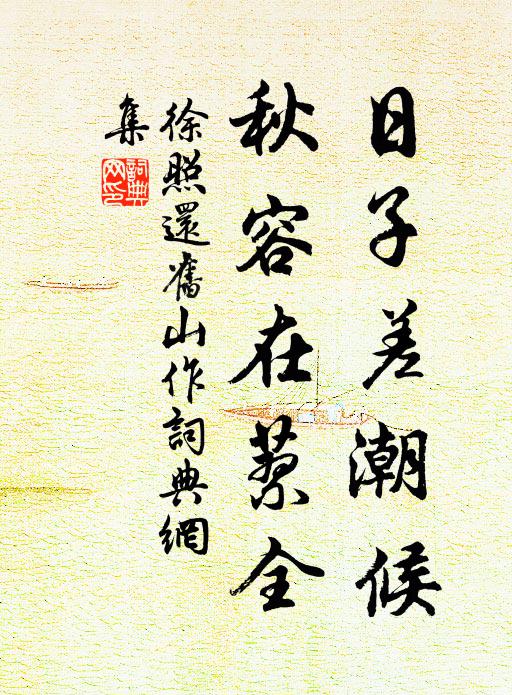 日子差潮候
秋容在全
徐照還舊山作詞典網
集
詞典
网印